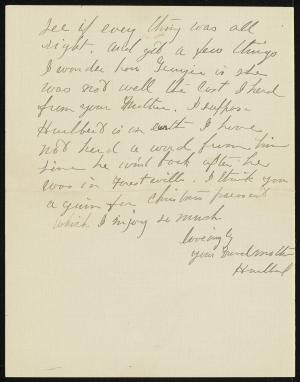 see if every thing was all
right. and get a few things
I wonder how Georgie is she
was not well the last I herd
from your Mother. I suppose
Hurlbert is on earth I have
not herd a word from him
since he went back after he
was in Forestville. I think you
a given for Christmas present
which I injoy so much
loveingly
your Grandmother
Hurlburt